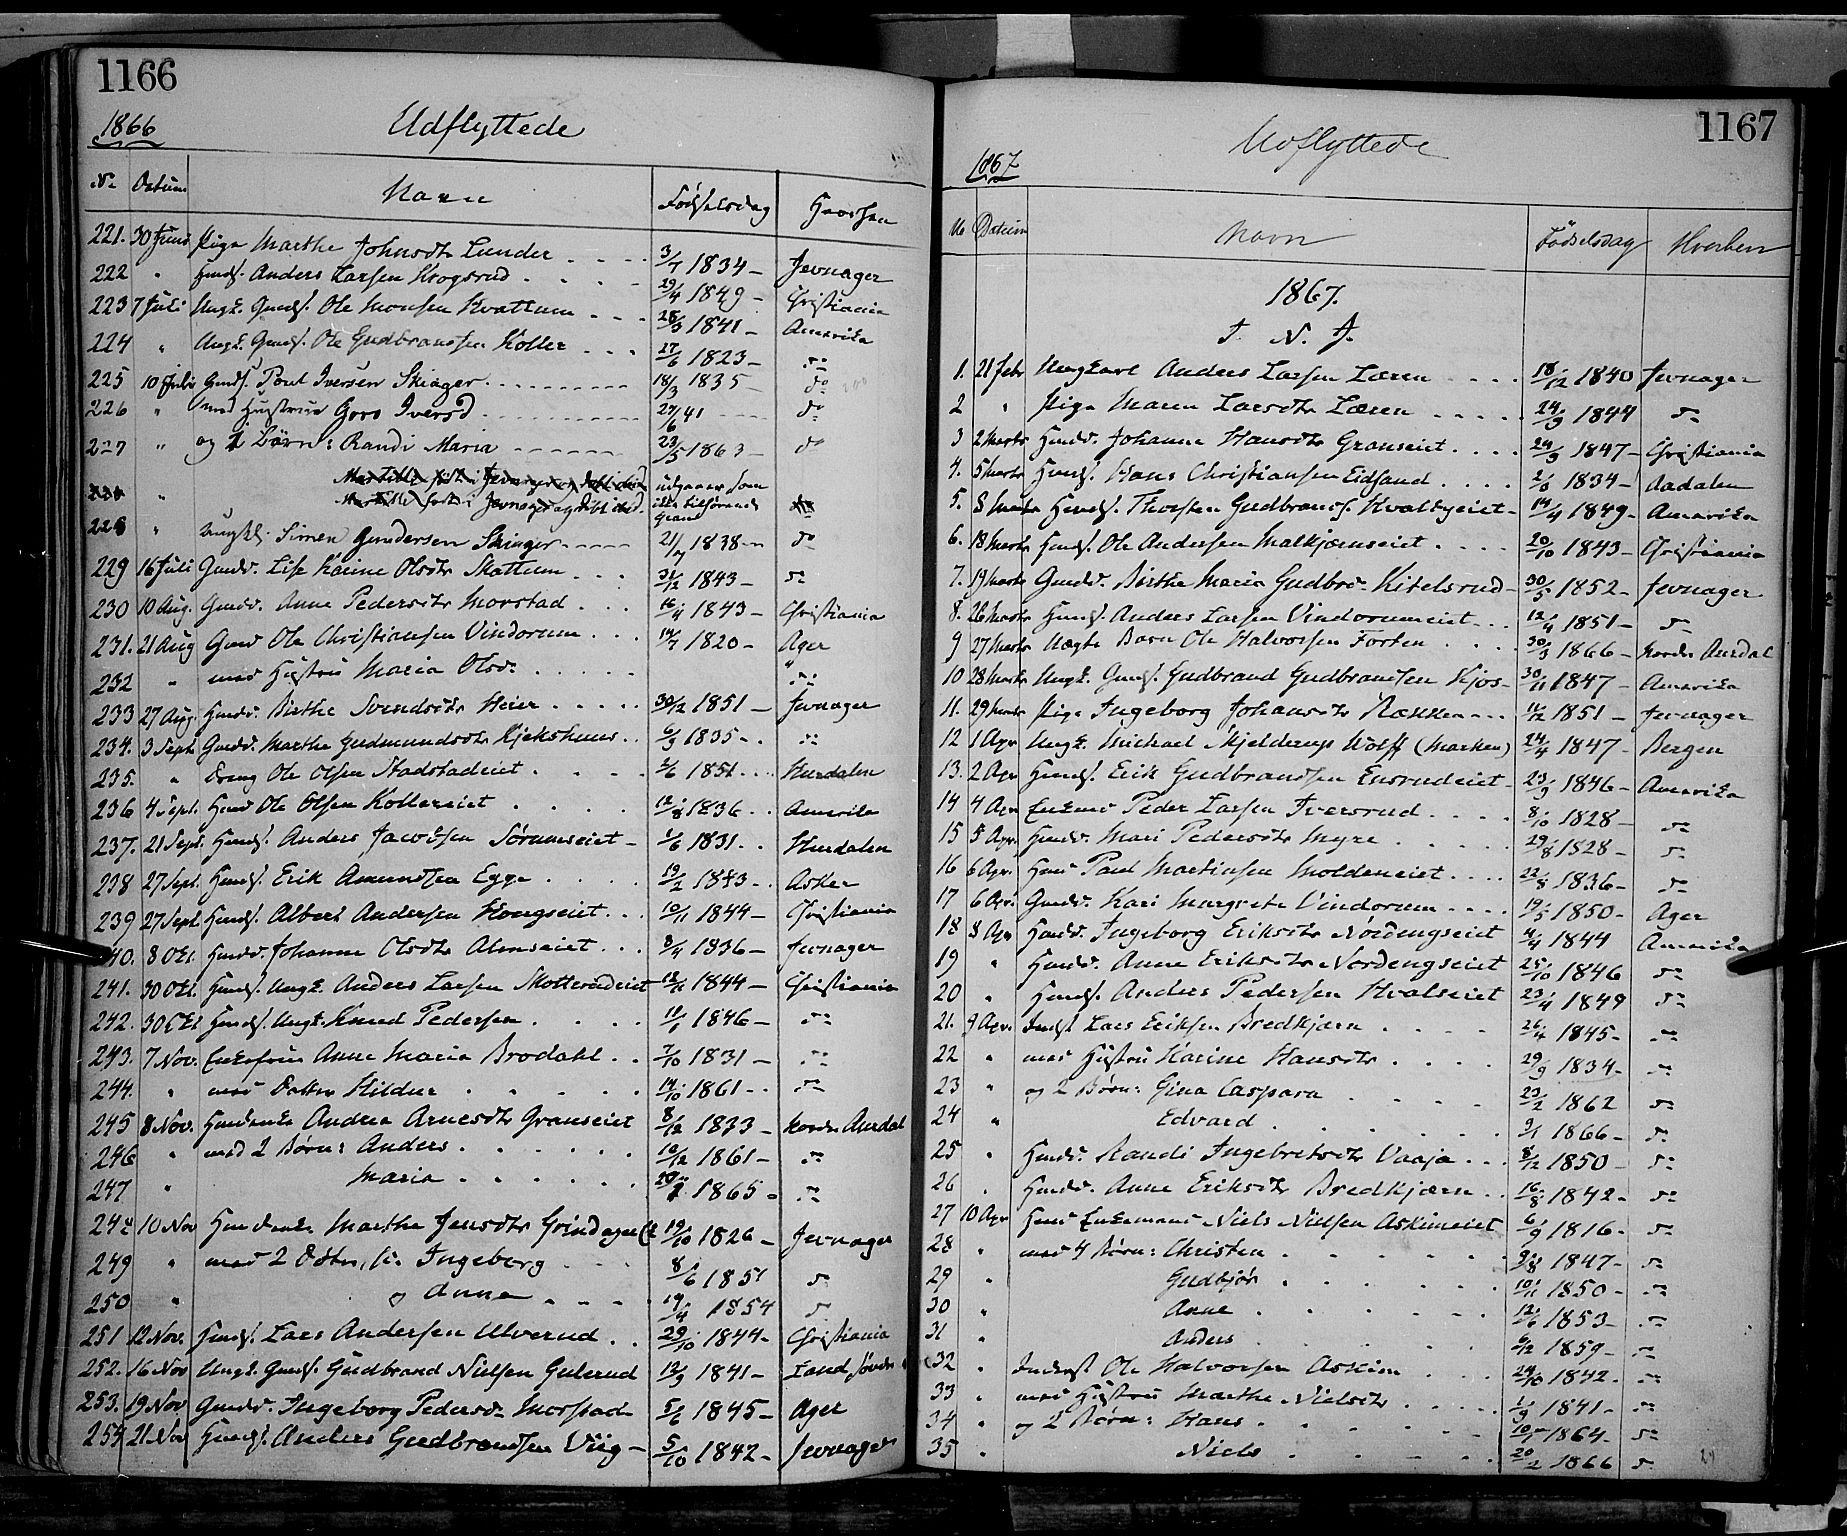 1166
1866
Udflyttede
No Datum Navn Fødselsdag Hvorhen
221. 30 Juni Pige Marthe Johnsdtr Lunder 3/7 1834 - Jevnager
222 " Huusf. Anders Larsen Krogsrud 29/4 1849 - Christiania
223 7 Juli Ungk. Gaards. Ole Monsen Hvattum 28/3 1841 - Amerika
224 " Ungk. Gaards. Ole Gudbrandsen Koller 27/6 1823 - do
225 10 Juli Gaards. Poul Iversen Skiager 18/3 1835 do
226 " med Hustrue Goro Iversd 27/6 41 do
227 " og 1 Børn: Randi Maria 23/5 1863 do
udgaaer som
228 " Ungkl. Simen Gundersen Skiager 21/7 1838 - do
229 16 Juli Gaardd. Lise Karine Olsdtr Skattum 31/12 1843 - do
230 10 Aug. Gaardd. Anne Pedersdtr Morstad 16/4 1843 - Christiania
231. 21 Aug Gmd Ole Christiansen Vindorum 14/7 1820 - Ager
232 " med Hustru Maria Olsd. "
233 27 Aug. Huusd. Birthe Svendsdtr Heier 30/12 1851 - Jevnager
234. 3 Sept Gaardd. Marthe Gudmundsdtr Kjekshuus 6/9 1835 - do
235. " Dreng Ole Olsen Stadstadeiet 2/6 1851 Hurdalen
236 4 Sept. Huusm Ole Olsen Kollereiet 12/8 1836 Amerika
237. 21 Sept. Huusf. Anders Jacobsen Sørumseiet - 1/6 1831 Hurdalen
238 27 Sept. Huusf. Erik Amundsen Egge 19/2 1843 - Asker
239 27 Sept Huusf. Albert Andersen Hougseiet 10/11 1844 - Christiania
240. 8 Okt. Huusd. Johanne Olsdtr Almseiet 8/4 1836 - Jevnager
241. 30 Okt. Huusf. Ungk. Anders Larsen Motterudeiet 1844 - Christiania
242. 30 Okt Huusf. Ungk. Knud Pedersen 11/1 1846 - do
243. 7 Nov. Enkefrue Anne Maria Brodahl 7/10 1831 - do
244. " med Datter Hildur 14/10 1861 do
245 8 Nov. Huusenke Andrea Arnesdtr Granseiet 8/12 1833 - Nordre Aurdal
246 " med 2 Børn: Anders 16/12 1861 - do
247 " Maria 1865 - do
248 10 Nov Huusenke Marthe Jensdtr Grindager 19/10 1826 - Jevnager
249 " med 2 Døtre, Ingeborg 8/6 1851 do
250 " og Anna 19/4 1854 do
251 12 Nov. Huusf. Lars Andersen Ulverud 29/10 1844 - Christiania
252. 16 Nov Ungk. Gaards. Gudbrand Nielsen Gulerud 12/9 1841 - Land Søndre
253. 19 Nov Gaardd. Ingeborg Pedersd. Morstad 5/6 1845 - Ager
254 21 Nov Huusf. Anders Gudbrandsen Viig - 5/10 1842 - Jevnager
1167
1867
Udflyttede
No Datum Navn Fødselsdag Hvorhen
1867.
I. N. J.
1. 21 Febr Ungkarl Anders Larsen Læren 18/12 1840 Jevnager
2 " Pige Maren Larsdtr Læren 24/9 1844 do
3 2 Marts Huusd. Johanne Hansdtr Granseiet 24/9 1847 - Christiania
4. 5 Marts Huusf. Hans Christiansen Eidsand 2/8 1834 - Aadalen
5. 8 Marts Huusf. Thorsten Gudbrands. Hvalbyeiet - 14/4 1849 - Amerika
6. 18 Marts Huusf. Ole Andersen Malkjærnseiet 20/10 1843 - Christiania
7. 19 Marts Gaardd. Birthe Maria Gudbrd. Kitelsrud - 30/5 1852 - Jevnager
8. 26 Marts Huusf. Anders Larsen Vindorumeiet 12/4 1851 - do
9 27 Marts Uægte Barn Ole Halvorsen Forten 30/3 1866 - Nordre Aurdal
10 28 Marts Ungk. Gaards. Gudbrand Gudbrandsen Kjos - 30/11 1847 - Amerika
11. 29 Marts Pige Ingeborg Johansdtr Røkken 11/12 1851 - Jevnager
12 1 Apr Ungk. Michael Skjelderup Wolff (Marken) 24/4 1847 - Bergen
13. 2 Apr Huusf. Erik Gudbrandsen Ensrudeiet - 23/9 1846 - Amerika
14 4 Apr Enkem Peder Larsen Iversrud 8/10 1828 - do
15 5 Apr. Huusd. Mari Pedersdtr Myre 29/8 1828 - do
16 6 Apr. Huusm Paul Martinsen Moldeneiet 22/8 1836 - do
17 6 Apr. Gaardd. Kari Margrete Vindorum 19/5 1850 - Ager
18 8 Apr Huusd. Ingeborg Eriksdtr Nordengseiet 4/4 1844 Amerika
19 " Huusd. Anne Eriksdtr Nordengseiet 25/10 1846 do
20 " Huusf. Anders Pedersen Hvalseiet 23/4 1849 do
21. 9 Apr. Inds Lars Eriksen Bredkjærn 26/4 1845 - do
22 " med Hustru Karine Hansdtr 29/9 1834 - do
23 " og 2 Børn: Gina Caspara 23/2 1862 do
24 " Edvard 9/1 1866 - do
25 " Huusd. Randi Ingebretsdtr Vaaja 8/12 1850 - do
26 " Huusd. Anne Eriksdtr Bredkjærn 16/8 1842 - do
27 10 Apr Huus Enkemand Niels Nielsen Askimeiet 6/9 1816 - do
28 " med 4 Børn: Christen 1847 - do
29 " Gudbjør 10/11 1850 - do
30 " Anne 12/6 1853 - do
31 " Anders 6/2 1859 - do
32 " Inderst Ole Halvorsen Askim 24/10 1842 - do
33 " med Hustru Marthe Nielsdtr 1/9 1841 - do
34 " og 2 Børn: Hans 1864 - do
35 " Niels 20/2 1866 do